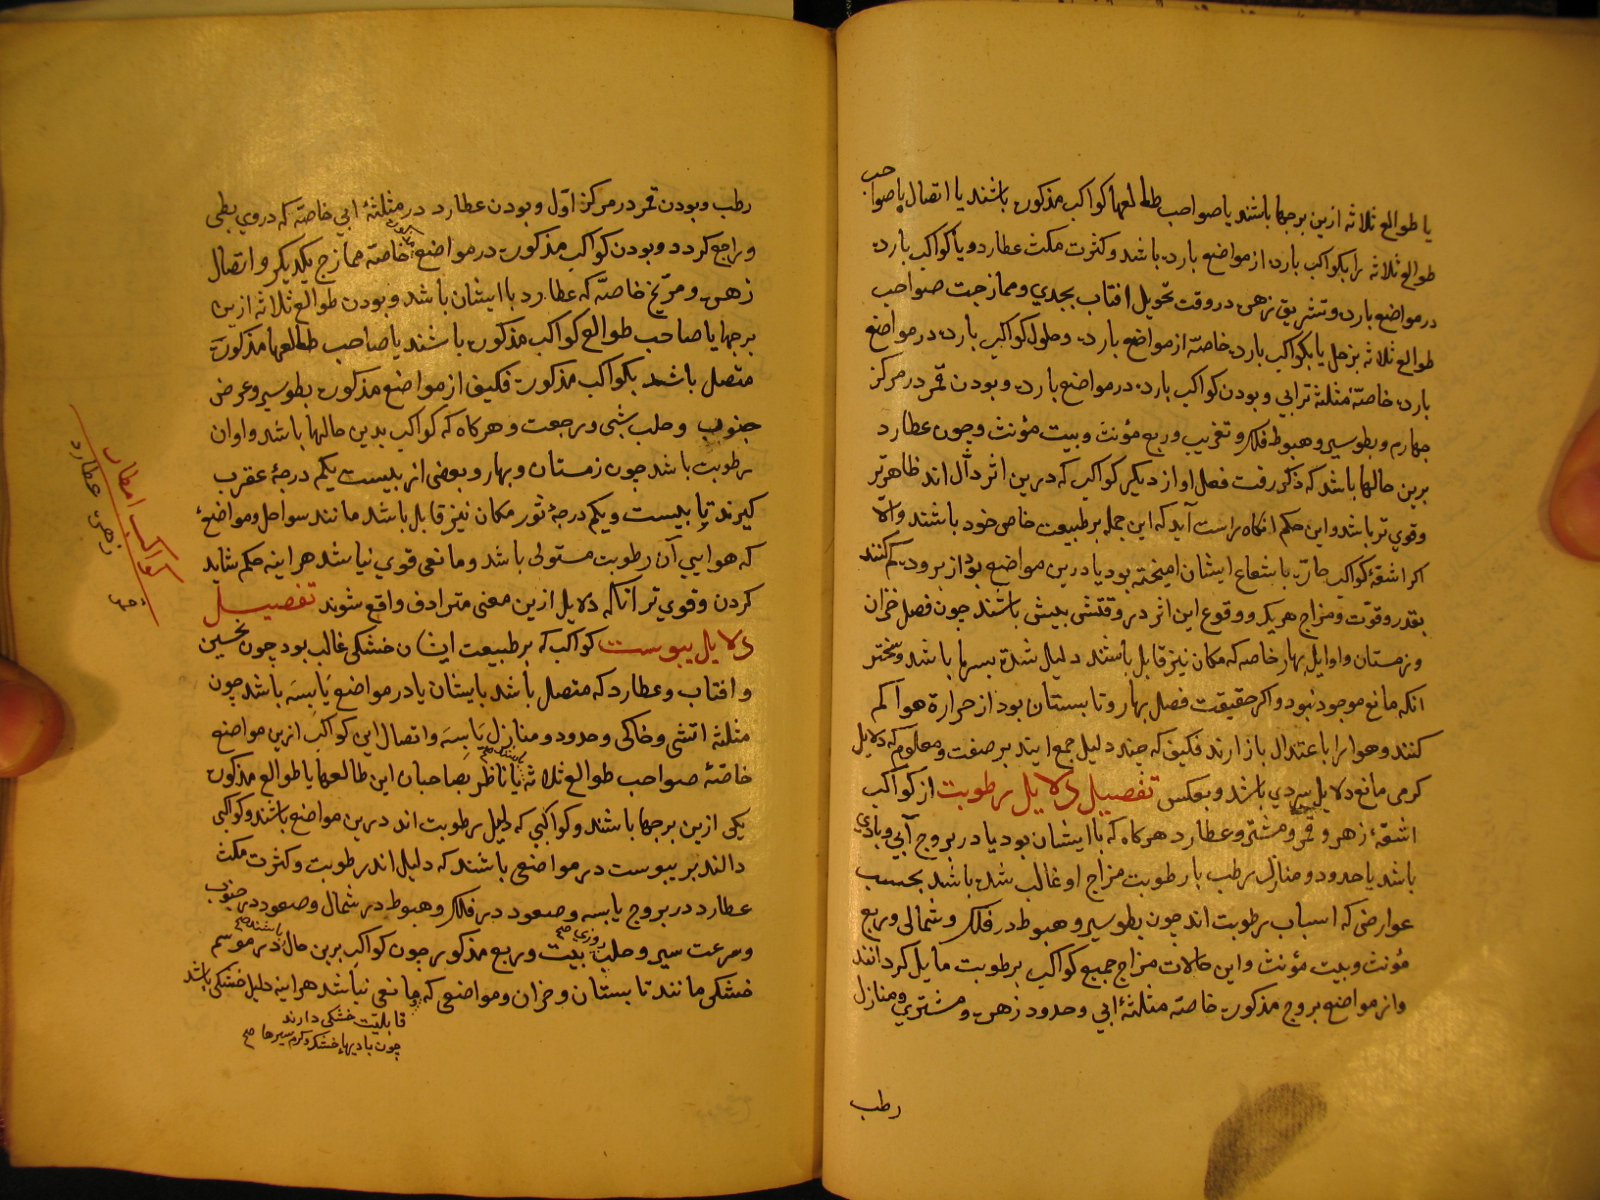 یا طوالع ثلاثه ازین برجها باشند یا صواحب طالعها کواکب مذکوره باشند یا اتصال یا صواحب
طوالع ثلاثه را بکواکب بارده از مواضع بارده باشد و کثرت مکث عطارد و یا کواکب بارده
در مواضع بارده و تشریق زهره در وقت تحویل افتاب بجدي و ممازجت صواحب
طوالع ثلاثه بزحل یا بکواکب بارده خاصّه از مواضع بارده و حلول کواکب بارده در مواضع
بارده خاصّه مثلثهٔ ترابي و بودن کواکب بارده در مواضع بارده و بودن قمر در مرکز
چهارم و بطو سیر و هبوط فلک و تغریب و ربع مؤنث و بیت مؤنث و چون عطارد
برین حالها باشد که ذکر رفت فعل او از دیکر کواکب که درین اثر دالّ اند ظاهرتر
و قوي تر باشد و این حکم انکاه راست آید که این جمله بر طبیعت خاص خود باشند والّا
اکر اشعّهٔ کواکب حارّه با شعاع ایشان امیخته بود یا درین مواضع بود از برودت کم کنند
بقدر و قوّت و مزاج هر یک و وقوع این اثر در وقتشی بیشی باشند چون فصل خزان
و زمستان و اوایل بهار خاصه که مکان نیز قابل باشند دلیل شدة سرما باشد و سختر
انکه مانع موجود نبود و اکر حقیقت فصل بهار و تابستان بود از حرارة هوا کم
کنند و هوا را با عتدال باز ارند فکیف که چند دلیل جمع ایند بر صفت و معلوم که دلایل
کرمی مانع دلایل سردي باشد و بعکس تفصیل دلایل رطوبت از کواکب
اشعّهٔ زهره و قمر و مشتري و عطارد هرکاه که با ایشان بود یا در بروج آبي و بادي
باشد یا حدود و منازل رطب بار طوبت مزاج او غالب شده باشد بحسب
عوارضی که اسباب رطوبت اند چون بطو سیر و هبوط در فلک و شمالی و ربع
مؤنث و بیت مؤنث و این حالات مزاج جمیع کواکب بر طوبت مایل کردانند
و از مواضع بروج مذکوره خاصه مثلثهٔ ابي و حدود زهره و مشتري و منازل
رطب
رطب و بودن قمر در مرکز اوّل و بودن عطارد در مثلثهٔ ابي خاصّه که در وي بطی
و راجع کردد و بودن کواکب مذکوره در مواضع مذکوره خاصّه ممازج یکدیکر و اتصال
زهره و مرّیخ خاصّه که عطارد با ایشان باشد و بودن طوالع ثلاثه ازین
برجها یا صاحب طوالع کواکب مذکوره باشند یا صاحب طالعها مذکوره
متصل باشند بکواکب مذکوره فکیف از مواضع مذکوره بطو سیر و عرض
جنوب و حلب شبی و رجعت و هرکاه که کواکب بدین حالها باشد و اوان
رطوبت باشد چون زمستان و بهار و بعضی از بیست یکم درجهٔ عقرب
کیرند تا بیست و یکم درجهٔ ثور مکان نیز قابل باشد مانند سواحل و مواضع
که هوایی آن رطوبت مستولی باشد و مانعی قوي نباشد هراینه حکم شاید
کردن و قوي تر انکه دلایل ازین معنی مترادف واقع شوند تفصیل
دلایل یبوست کواکب که بر طبیعت ایشان خشکی غالب بود چون نحسین
و افتاب و عطارد که متصل باشد بایشان یا در مواضع یابسَه باشد چون
مثلثه اتشی و خاکی و حدود و منازل یابسَه و اتصال این کواکب ازین مواضع
خاصّهٔ صواحب طوالع ثلاثه یا ناظر باشند صح بصاحبان این طالعها یا طوالع مذکوره
یکی ازین برجها باشند و کواکبي که دلیل رطوبت اند درین مواضع باشند و کواکبی
دالند بر یبوست در مواضعی باشند که دلیل اند رطوبت و کثرت مکث
عطارد در بروج یابسه و صعود در فلک و هبوط در شمال و صعود در جنوب
و سرعت سیر و حلب روزي صح بیت و ربع مذکور چون کواکب برین حال باشند صح در موسم
خشکی مانند تابستان و خزان و مواضعی که مانعی نباشد هراینه دلیل خشکی باشد
قابلیّت خشکی دارند
چون بادیهاء خشک و کرم سیرها صح
کواکب امطار
زهره عطارد
قمر